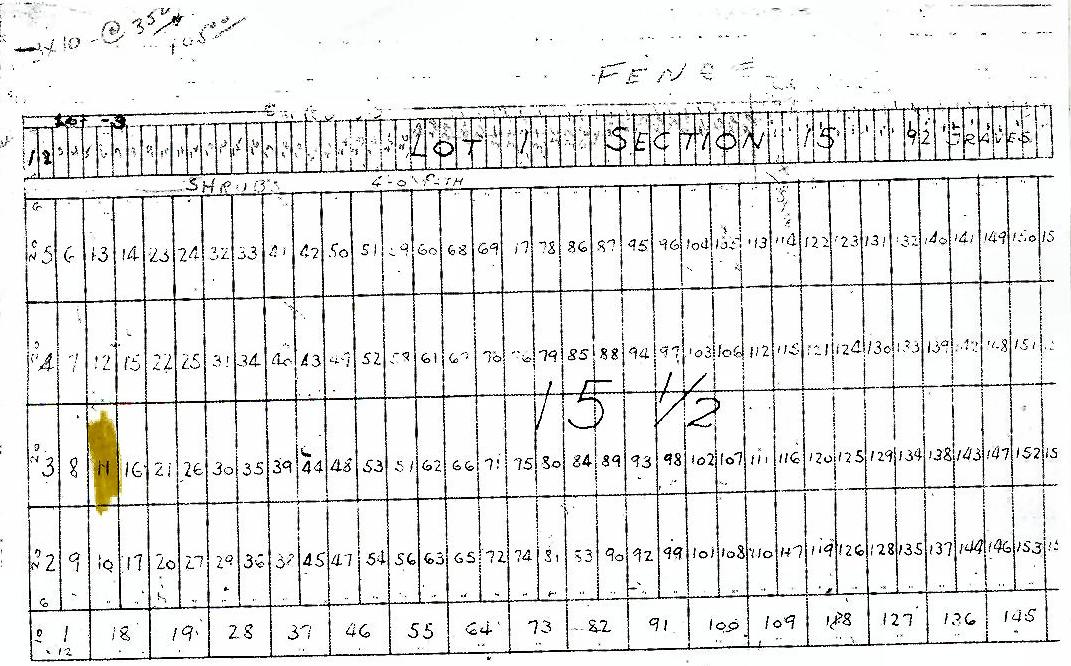 3X10 @ 35⁰⁰
105⁰⁰
FENCE
LOT -3
12 LOT 1 SECTION 15 92 GRAVES
SHRUBS 4-0 PATH
6
NO 5 6 13 14 23 24 32 33 41 42 50 51 59 60 68 69 77 78 86 87 95 96 104 105 113 114 122 123 131 132 140 141 149 150 15
NO 4 7 12 15 22 25 31 34 40 43 49 52 58 61 67 70 76 79 85 88 94 97 103 106 112 115 121 124 130 133 139 142 148 151
15 1/2
NO 3 8 11 16 21 26 30 35 39 44 48 53 57 62 66 71 75 80 84 89 93 98 102 107 111 116 120 125 129 134 138 143 147 152 15
NO 2 9 10 17 20 27 29 36 38 45 47 54 56 63 65 72 74 81 83 90 92 99 101 108 110 117 119 126 128 135 137 144 146 153 15
6
NO 1 18 19 28 37 46 55 64 73 82 91 100 109 118 127 136 145
12